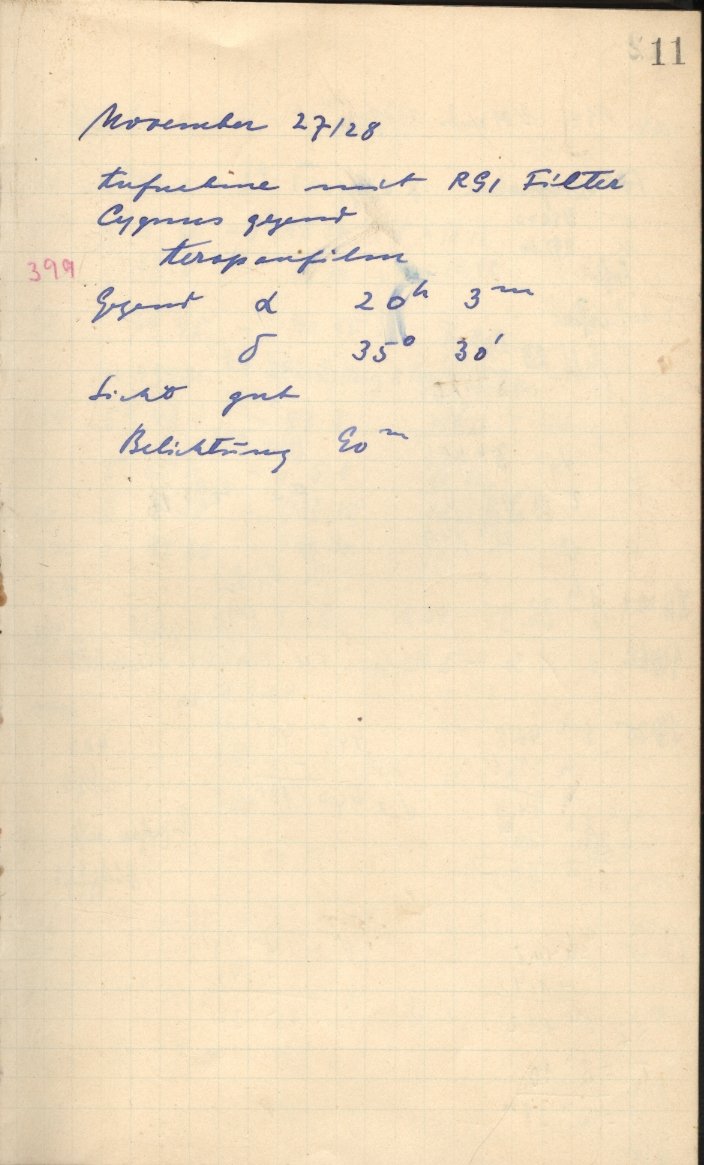 11
November 27/28
Aufnahme mit RG1 Filter
Cygnus gegend
399
Gegend α 20h 3m
δ 35° 30'
Sicht gut
Belichtung m